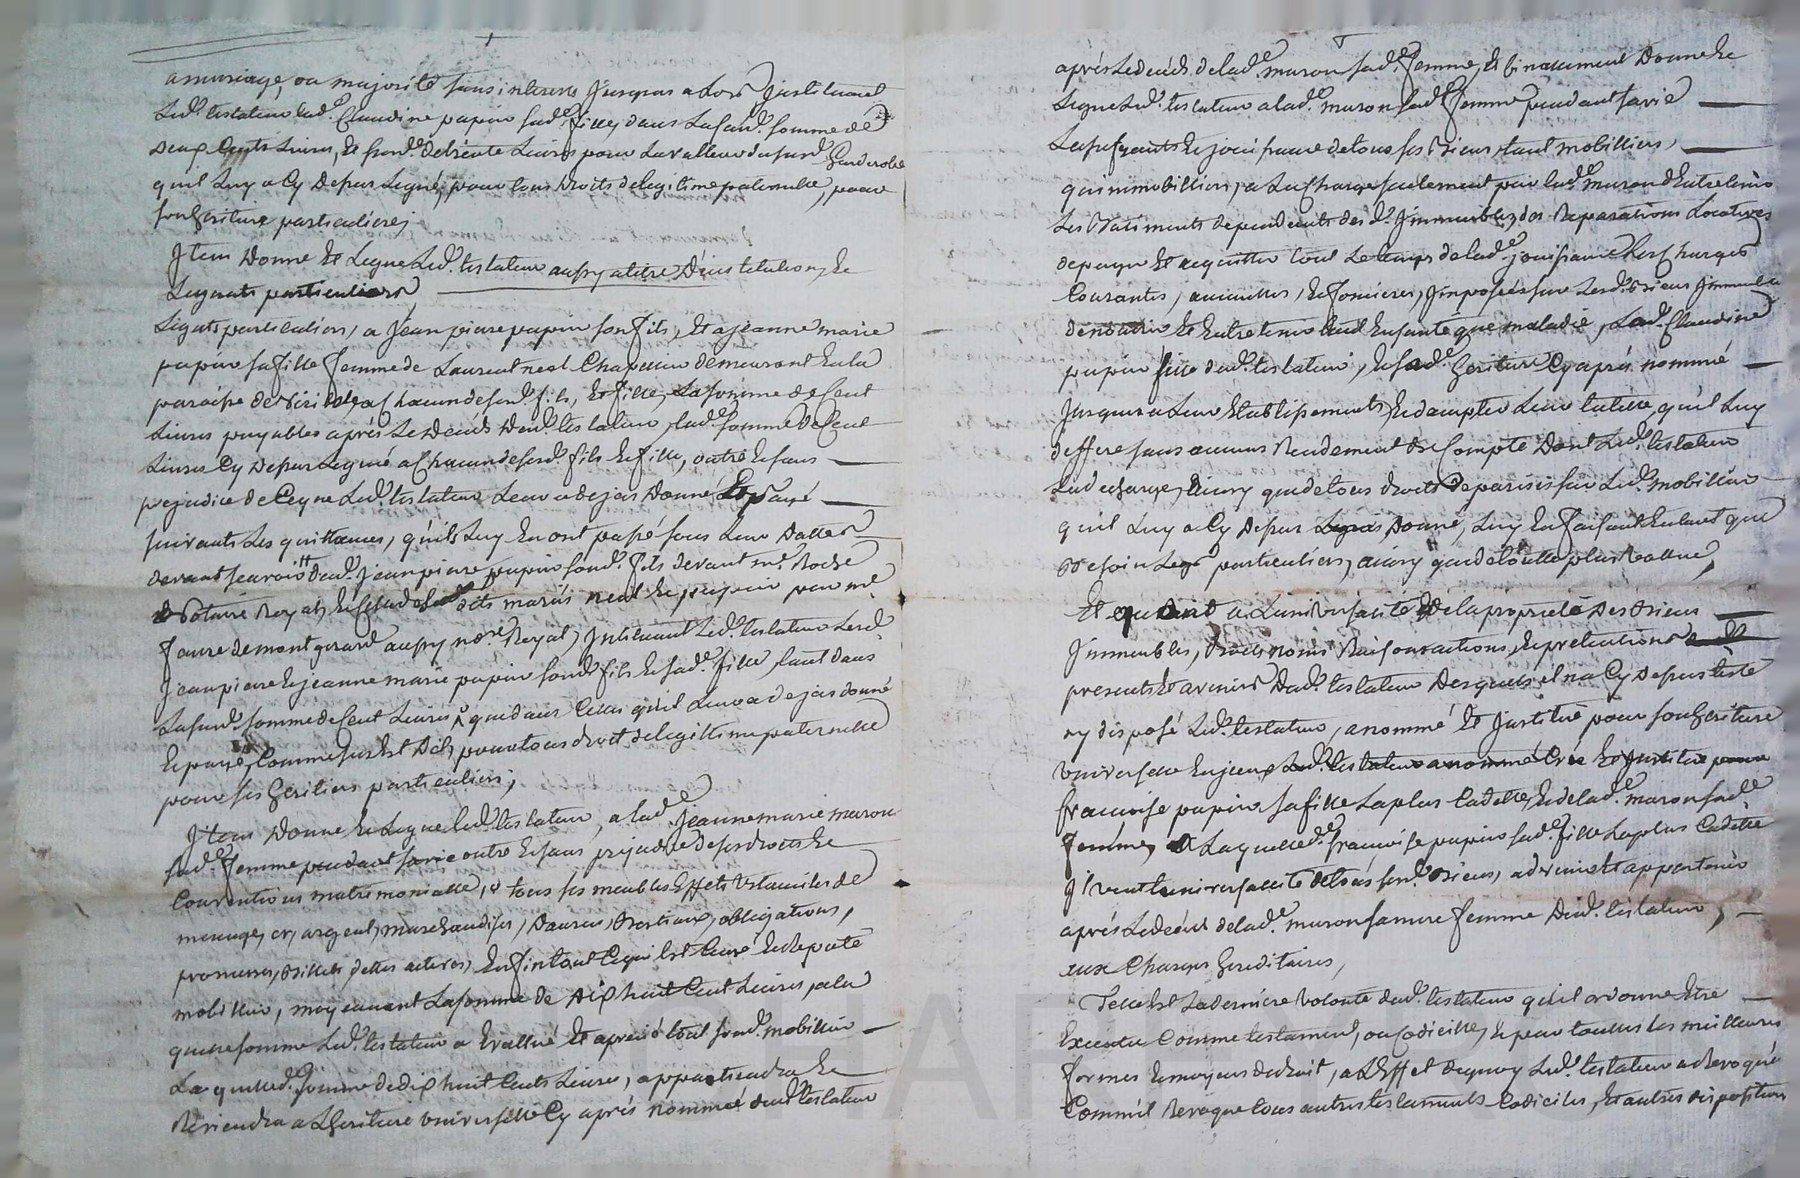 a mariage, ou majorité sans interets Jusques a Lors Jnstituant
Led.t testateur lad.e Claudine papin sad.e fille, dans Lasusd.e somme de
Deux Cents Livres, Et susd.e de trente Livres pour La valleur du susd.t Garderobe
quil Luy a Cy Dessus Legué, pour tous droits de legitime paternelle, pour
son heritiere particuliere;
Jtem Donne Et Legue Led.t testateur aussy a titre D'institution, Et
Legats particuliers
Legats particuliers, a Jean pierre papin son fils, Et a jeanne marie
papin sa fille femme de Laurent neel Chapelier demeurant En la
paroisse de a Chacun desesd.ts fils, Et fille, La somme de Cent
Livres payables aprés Le Decés dud.t testateur, lad.e somme de Cent
Livres Cy Dessus Legué a Chacun desesd.ts fils Et fille, outre Et sans
prejudice de Ce que Led.t testateur Leur a deja Donné Et payé
suivants Les quittances, qu'ils Luy En ont passé sous Leur Dattes
devant sçavoir dud.t Jean pierre papin sond.t fils devant m.e Roche
Notaire Royal, Et desd.ts mariés neel Et papin par m.e
faure de montgirard aussy no.re Royal, Jnstituant Led.t testateur Lesd.ts
Jean pierre Et jeanne marie papin sond.t fils Et sad.e fille, tant dans
Lasusd.e somme de Cent Livres que dans Celles qu'il Leur a deja donné
Et payé, Comme sus Est dit, pour tous droit de legittime paternelle
pour ses heritiers particuliers;
Jtem Donne Et Legue Led.t testateur, a lad.e Jeanne marie maron
sad.e femme pendant sa vie outre Et sans prejudice de ses droits Et
Conventions matrimoniales, tous ses meubles Effets Ustanciles de
menage, or, argent, marchandises, Danrées, Bestiaux, obligations,
promesses, Billets, dettes actives, Enfin tout Ce qui Est Censé Et reputé
mobillier, moyennant La somme de Dix huit Cent Livres, a la
quelle somme Led.t testateur a Evallué Et apretié tout sond.t mobillier
La quelled.e somme de dix huit Cents Livres, appartiendra Et
Reviendra a L'heritiere universelle Cy aprés nommée dud.t testateur
aprés Le decés de lad.e maron sad.e femme, Et finalement Donne Et
Legue Led.t testateur a lad.e maron sad.e femme pendant sa vie
Les fruits Et jouissance de tous ses Biens, tant mobilliers,
qu'immobilliers, a La Charge seulement par lad.e maron d'Entretenir
Les Batiments dependants desd.ts Jmmeubles, des Reparations Locatives
de payer Et acquitter tout Le temps de lad.e jouissance Les Charges
Courantes, annuelles, Et foncieres, Jmposées sur Lesd.ts Biens Jmmeubles
de nourrir Et Entretenir tant En santé que maladie, Lad.e Claudine
papin fille dud.t testateur, Et sad.e heritiere Cy aprés nommée
Jusques a Leur Etablissements, Et d'accepter Leur tutelle, qu'il Luy
deffere sans aucuns Rendement de Compte Dont Led.t testateur
La decharge, Ainsy que de tous droits De parisis sur Led.t mobillier
qu'il Luy a Cy Dessus Donné, Luy En faisant En tant que
Besoin Legs particuliers, ainsy que de toutte plus vallue,
Et quant a L'universalité Et de la proprieté Des Biens
Jmmeubles, droits noms Raisons actions, Et pretentions
presents Et avenirs Dud.t testateur Desquels il n'a Cy Dessus testé
ny disposé Led.t testateur, a nommé Et Jnstitué pour son heritiere
universelle Led.t testateur a nommé Créé Et Jnstitué pour
francoise papin sa fille La plus Cadette, Et de lad.e maron sad.e
femme, a Laquelled.e françoise papin sad.e fille La plus Cadette
Jl veut L'universalité de tous sesd.ts Biens, advenir Et appartenir
aprés Le decés de lad.e maron sa mere femme Dud.t testateur,
aux Charges hereditaires,
Telle Est La derniere volonté dud.t testateur qu'il ordonne Etre
Executée Comme testament, ou Codicille, Et par touttes Les meilleures
formes Et moyens de droit, a L'Effet De quoy Led.t testateur a Revoqué
Comm'il Revoque tous autres testaments Codiciles, Et autres dispositions